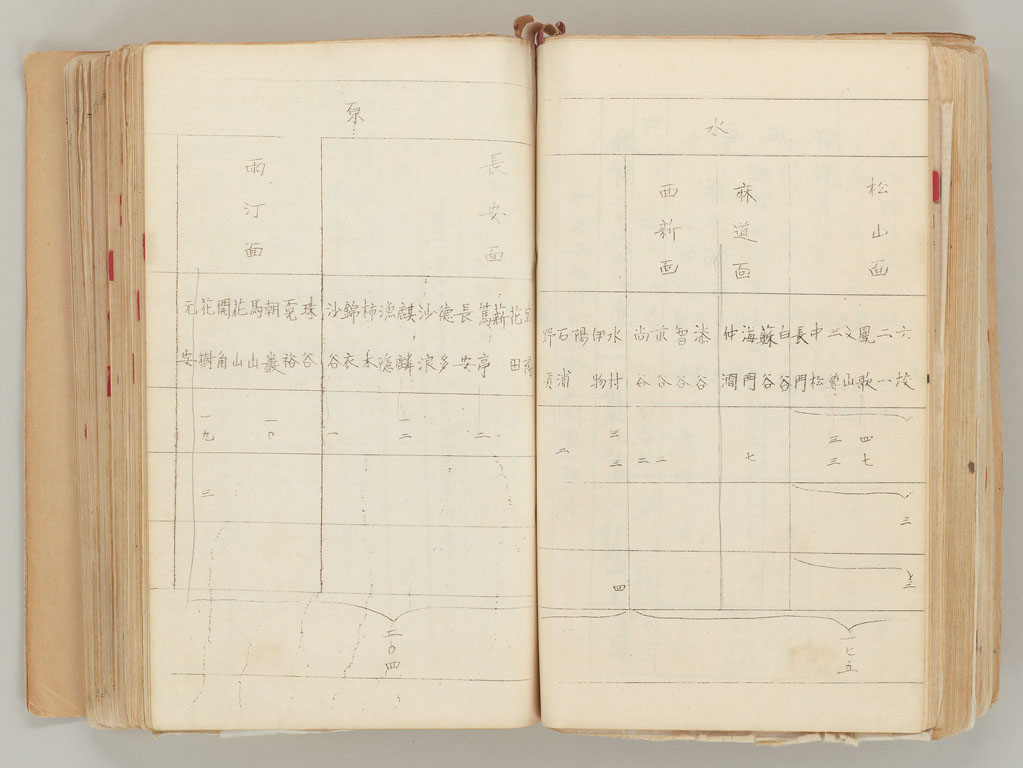 水
松山面
麻道面
西新面
鳳歌
文山
中松
長門
白谷
蘇谷
海門
仲澗
漆谷
智谷
尚谷
水村
伊物
陽
石浦
四七
三三
七
一
二
三三
二
三
四
一七五
長安面
雨汀面
花田
薪
篤亭
長安
德多
沙浪
麒麟
漁隱
柿木
錦衣
沙谷
珠谷
朝巖
馬山
花山
開角
花樹
元安
二
一二
一
一九
三
二〇四